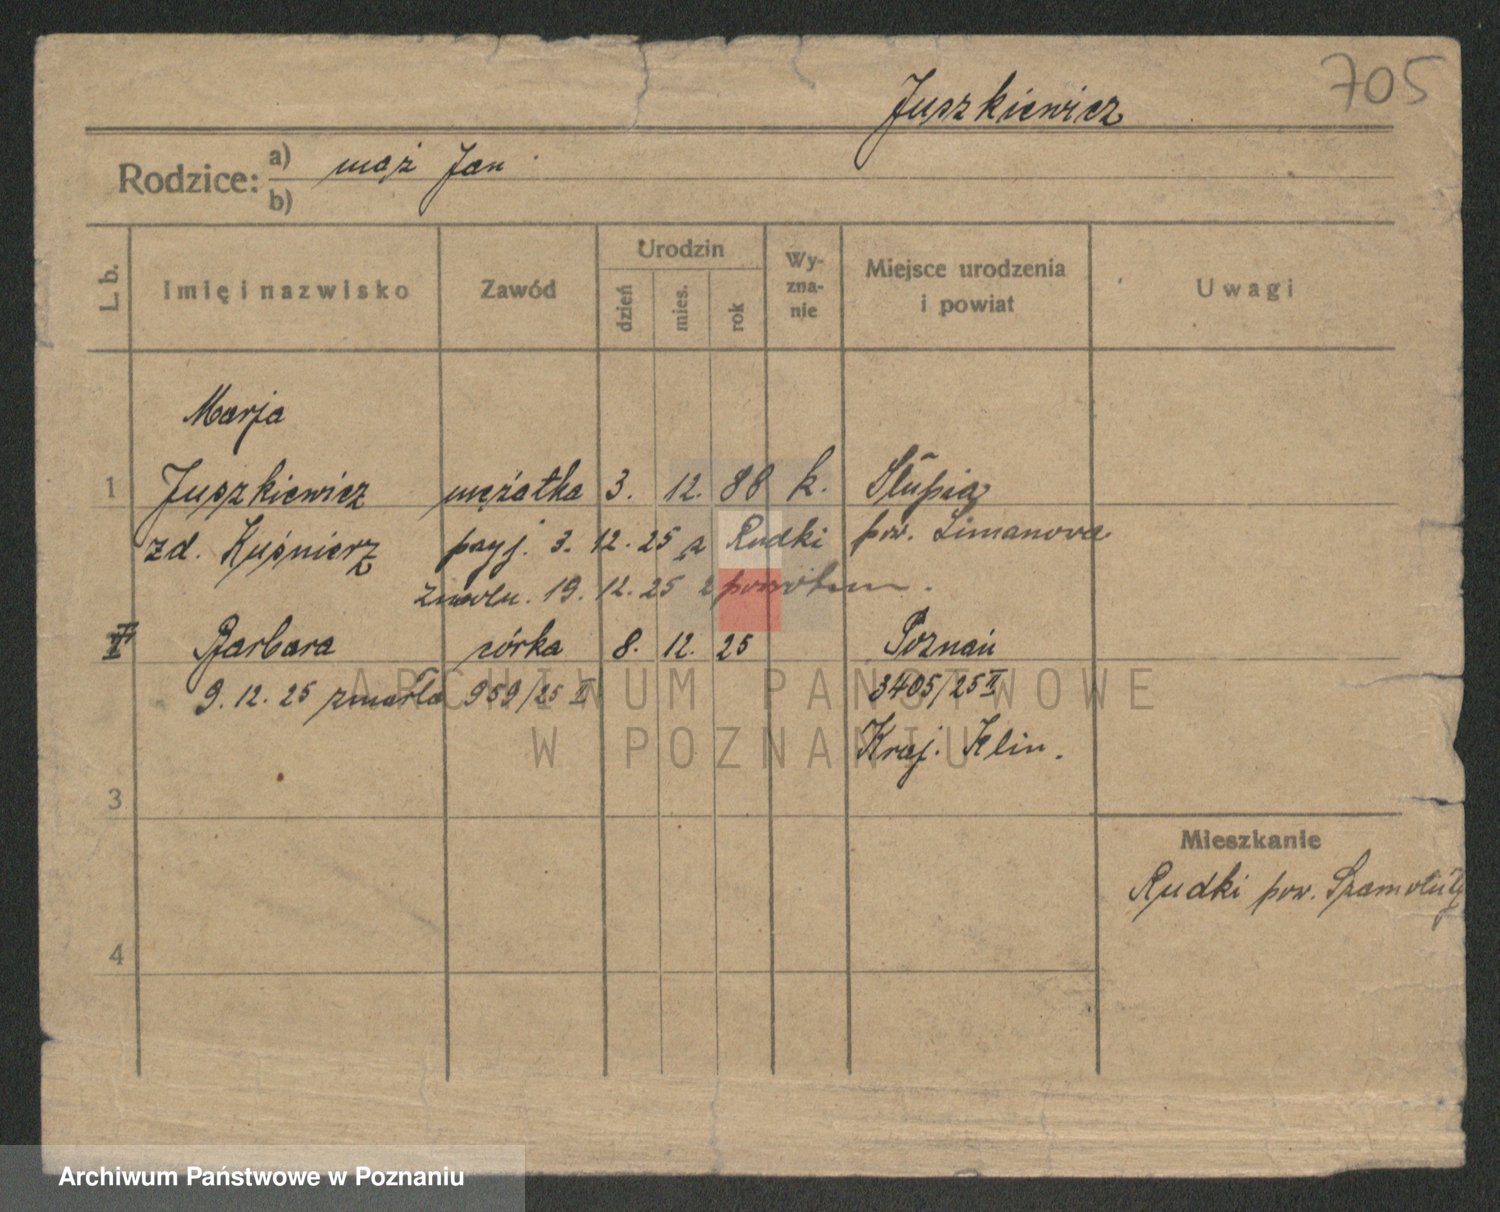 705
Juszkiewicz
Rodzice: a) mąż Jan
b)
L. b. Imię i nazwisko Zawód Urodzin dzień mies. rok Wy-zna-nie Miejsce urodzenia i powiat Uwagi
Marja
1 Juszkiewicz mężatka 3. 12. 88 k. Słupia
zd. Kuśnierz przyj. 3. 12. 25 z Rudki pow. Limanova
zwoln. 19. 12. 25 z powrotem.
II Barbara córka 8. 12. 25 Poznań
9. 12. 25 zmarła 959/25 II 3405/25 II
Kraj. Klin.
3
Mieszkanie
Rudki pow. Szamotuły
4
ARCHIWUM PAŃSTWOWE
W POZNANIU
Archiwum Państwowe w Poznaniu